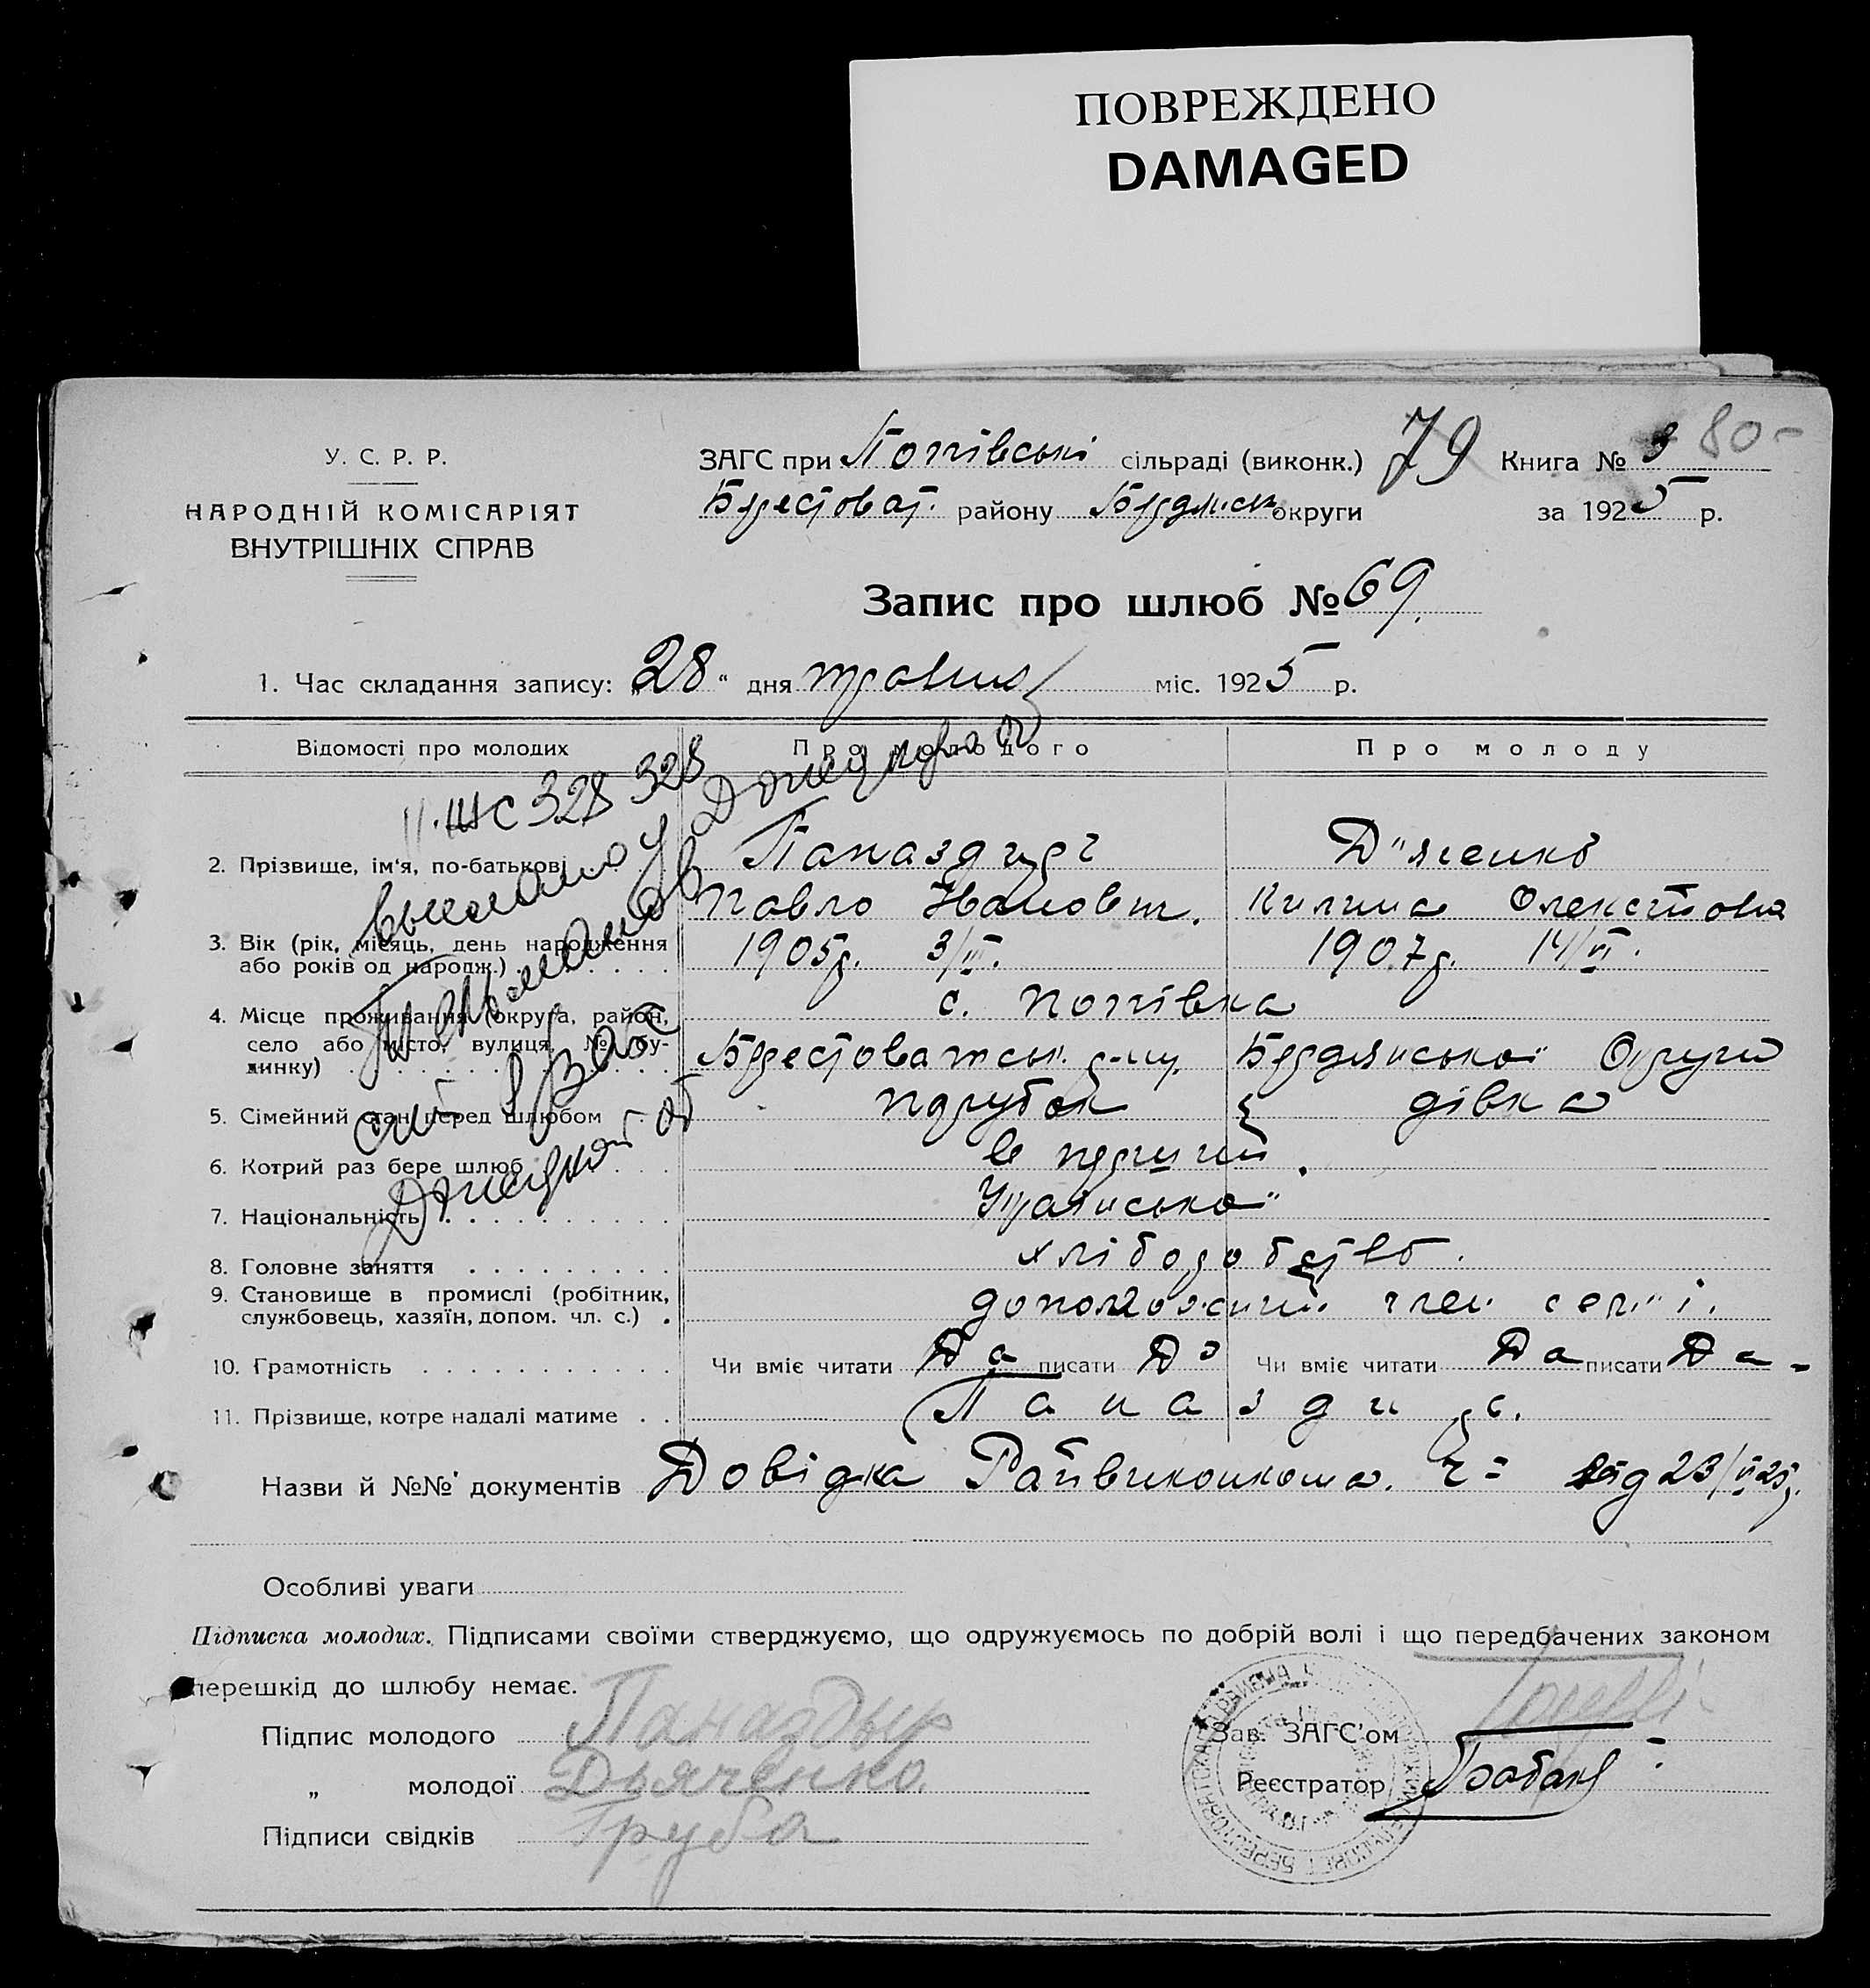 ПОВРЕЖДЕНО
DAMAGED
У. С. Р. Р.
НАРОДНІЙ КОМІСАРІЯТ
ВНУТРІШНІХ СПРАВ
ЗАГС при Попівські сільраді (виконк.) 79 Книга № 3 80-
Берестоват. району Бердянськ округи за 1925 р.
Запис про шлюб № 69.
1. Час складання запису: „28“ дня травня міс. 1925 р.
Відомості про молодих Про молодого Про молоду
ІІ.ШС 328 328
2. Прізвище, ім'я, по-батькові Паназдирь Д"яченко
Павло Іванович. Килина
3. Вік (рік, місяць, день народження
або років од народж.) 1905р. 3/III. 1907р. 14/VI.
4. Місце проживання (округа, район, с. Попівка
село або місто, вулиця, № бу-
динку) Берестоватськ. р-ну. Бердянської Округи
5. Сімейний стан перед шлюбом парубок дівка
6. Котрий раз бере шлюб в перший.
7. Національність Української
8. Головне заняття хліборобство.
9. Становище в промислі (робітник,
службовець, хазяїн, допом. чл. с.) допоможний член сем"ї.
10. Грамотність Чи вміє читати Да писати Да Чи вміє читати Да писати Да-
11. Прізвище, котре надалі матиме Паназдирь.
Назви й №№ документів Довідка Райвиконкома. від 23/V 25р.
Особливі уваги
Підписка молодих. Підписами своїми стверджуємо, що одружуємось по добрій волі і що передбачених законом
перешкід до шлюбу немає.
Підпис молодого Паназдыр Зав. ЗАГС'ом
„ молодої Дьяченко. Реєстратор
Підписи свідків Груба